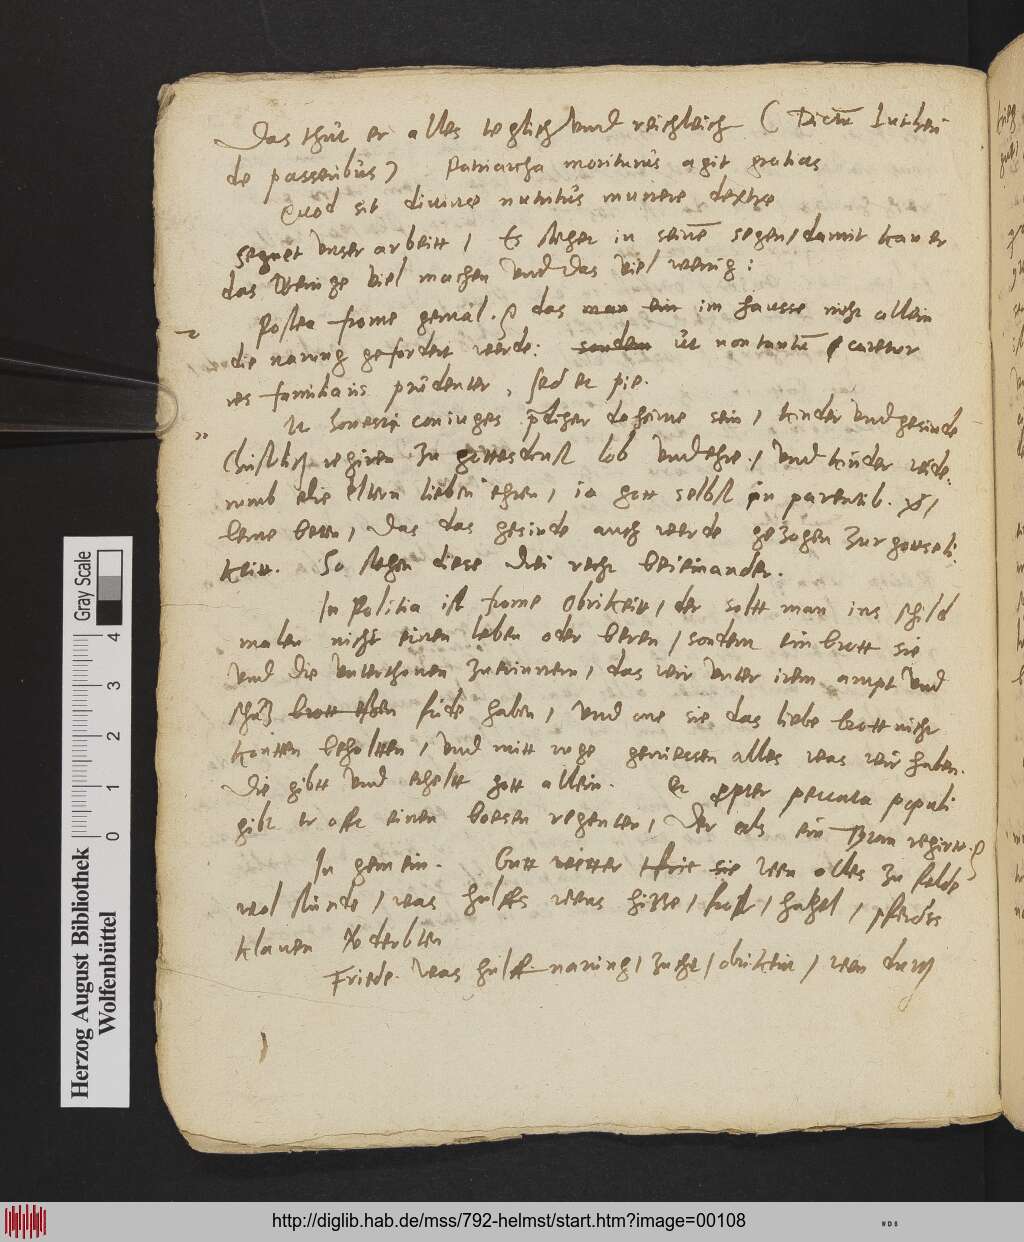 Das thut er alles teglich und reichleich ( Dictū Lutheri
de passeribus ) Patriarcha moriturus agit gratias
Quod sit divinae nutritus munere dextrae
segnet unser arbeitt / Es stehet in seinē segen / damit kan er
das Wenige viel machen und das viel wenig :
2 Postea frome gemäl. das man ein im hausse nicht allein
die narung gefordert werde: sondern ut non tantū curetur
res familiaris prudenter, sed et pie.
Ut honesti coniuges daheime sein / kinder und gesinde
Christlich regiren zu gottesdienst lob und ehre / und kinder
umb die eltern lieben ehren / ia gott selbst in parentib.
lerne beten / Das das gesinde auch werde gezogen zur gottseli
keitt. So stehen diese drei recht beieinander.
In Politia ist frome Obrikeitt / der soltt man ins schild
malen nicht einen leben oder beren / sondern ein brott sie
und die unterthonen zuerinnern / das wir unter irem ampt und
schutz brott essen fride haben / und one sie das liebe brott nicht
kontten behaltten / und mitt ruge geniessen alles was wir haben.
Die gibtt und erheltt gott allein. Et propter peccata populi
gibt er offt einen boesen regenten / Der als ein Tyran regirtt.
In gemein. Gutt wetter sie wen alles zu felde
wol stunde / was hulffs wens hitze / frost / hagel / pferdss
klauen derbten
Friede. Was hulff narung / zucht / obrikeitt / wen durch
Herzog August Bibliothek
Wolfenbüttel
Gray Scale
0 1 2 3 4
http://diglib.hab.de/mss/792-helmst/start.htm?image=00108